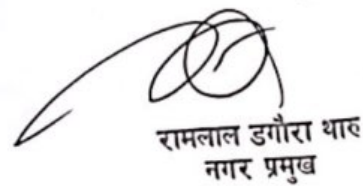 रामलाल डगौरा थारु
नगर प्रमुख